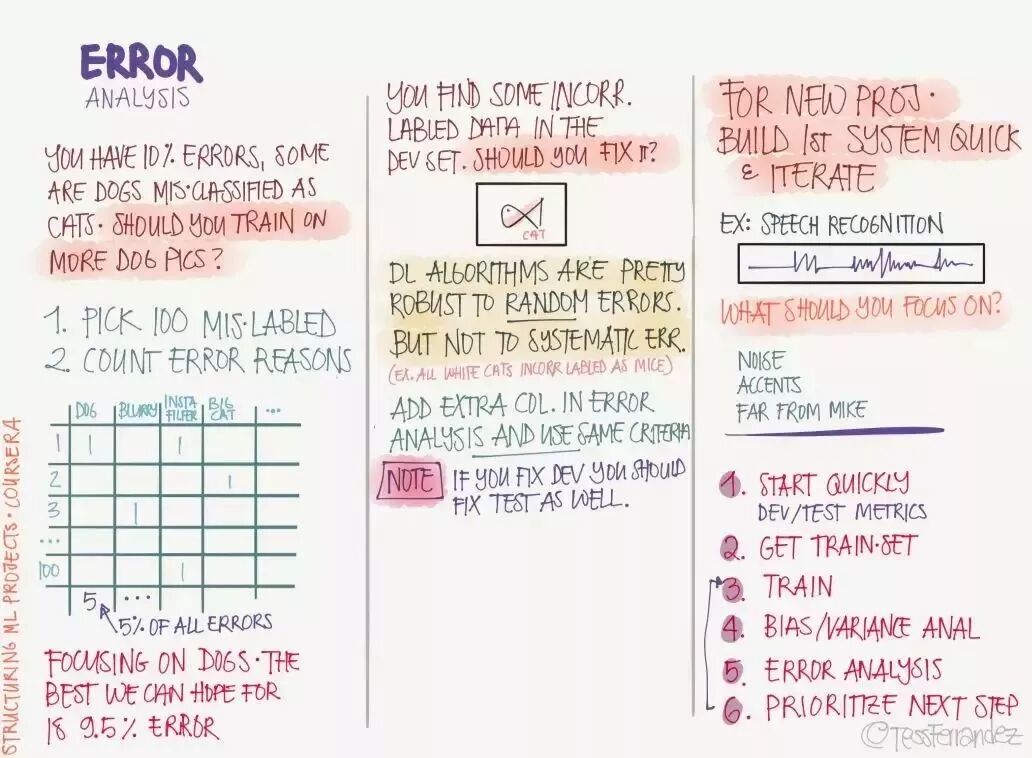 ERROR
ANALYSIS
YOU HAVE 10% ERRORS, SOME
ARE DOGS MIS·CLASSIFIED AS
CATS· SHOULD YOU TRAIN ON
MORE DOG PICS?
1. PICK 100 MIS·LABLED
2. COUNT ERROR REASONS
DOG BLURRY INSTA FILTER BIG CAT ...
1 | |
2 |
3 |
...
100 |
5 ...
5% OF ALL ERRORS
FOCUSING ON DOGS· THE
BEST WE CAN HOPE FOR
IS 9.5% ERROR
STRUCTURING ML PROJECTS · COURSERA
YOU FIND SOME INCORR.
LABLED DATA IN THE
DEV SET. SHOULD YOU FIX IT?
CAT
DL ALGORITHMS ARE PRETTY
ROBUST TO RANDOM ERRORS.
BUT NOT TO SYSTEMATIC ERR.
(EX. ALL WHITE CATS INCORR LABLED AS MICE)
ADD EXTRA COL. IN ERROR
ANALYSIS AND USE SAME CRITERIA
NOTE IF YOU FIX DEV YOU SHOULD
FIX TEST AS WELL.
FOR NEW PROJ·
BUILD 1st SYSTEM QUICK
& ITERATE
EX: SPEECH RECOGNITION
WHAT SHOULD YOU FOCUS ON?
NOISE
ACCENTS
FAR FROM MIKE
1. START QUICKLY
DEV/TEST METRICS
2. GET TRAIN·SET
3. TRAIN
4. BIAS/VARIANCE ANAL
5. ERROR ANALYSIS
6. PRIORITIZE NEXT STEP
@TessFerrandez